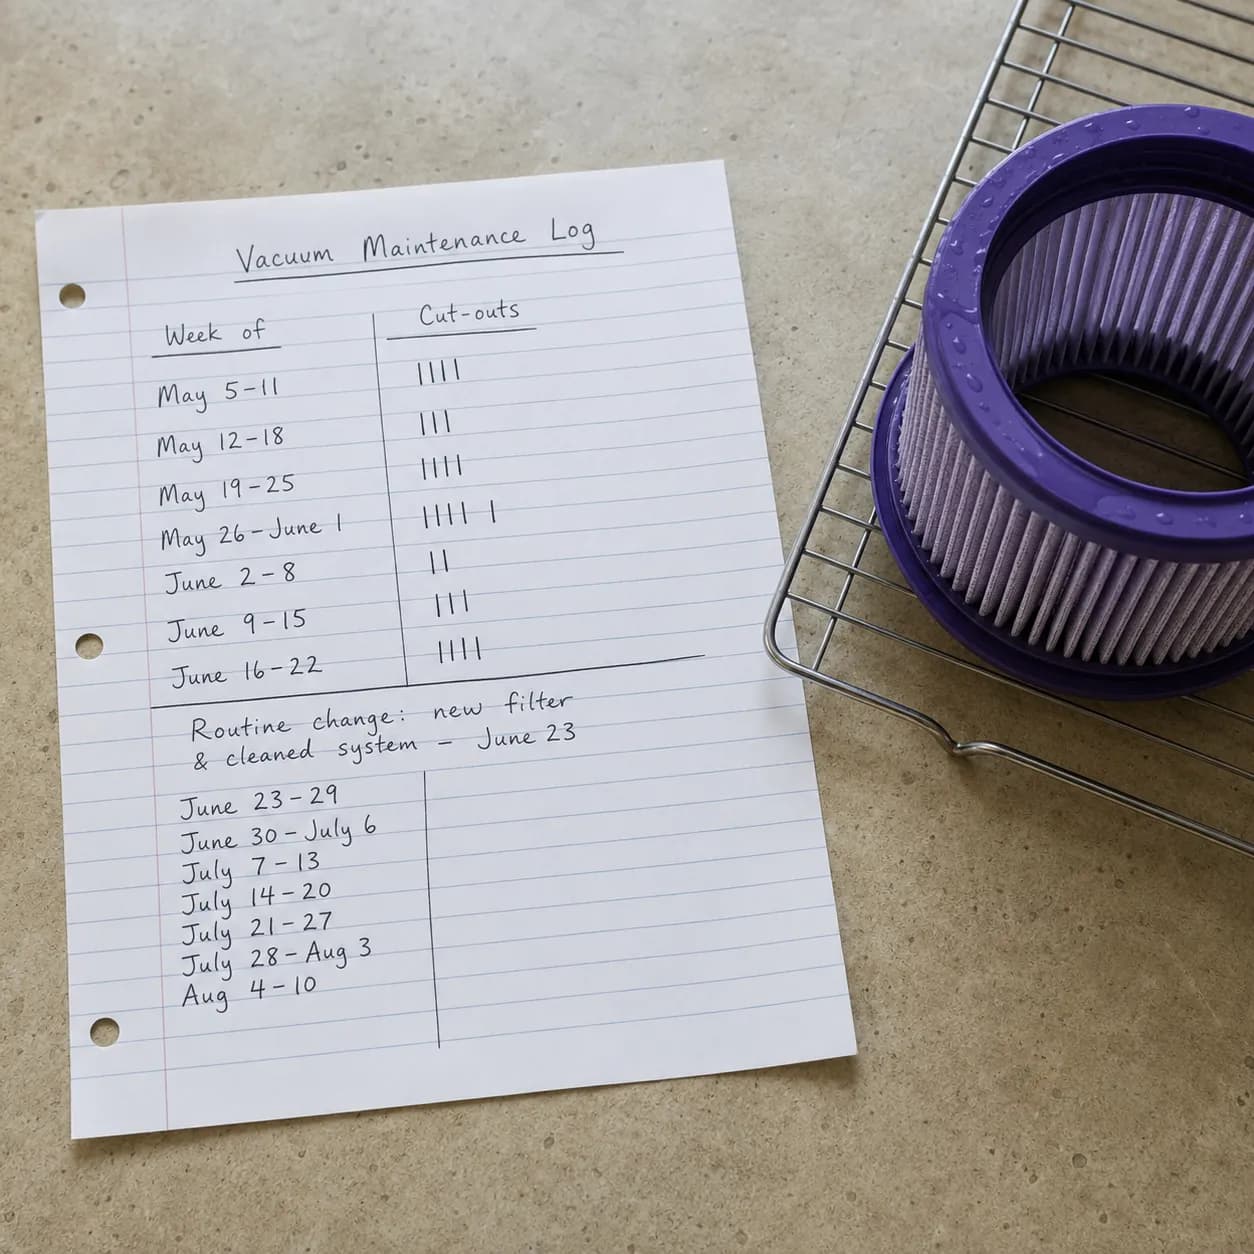 Vacuum Maintenance Log
Week of Cut-outs
May 5-11 ||||
May 12-18 |||
May 19-25 ||||
May 26-June 1 |||| |
June 2-8 ||
June 9-15 |||
June 16-22 ||||
Routine change: new filter
& cleaned system - June 23
June 23-29
June 30-July 6
July 7-13
July 14-20
July 21-27
July 28-Aug 3
Aug 4-10